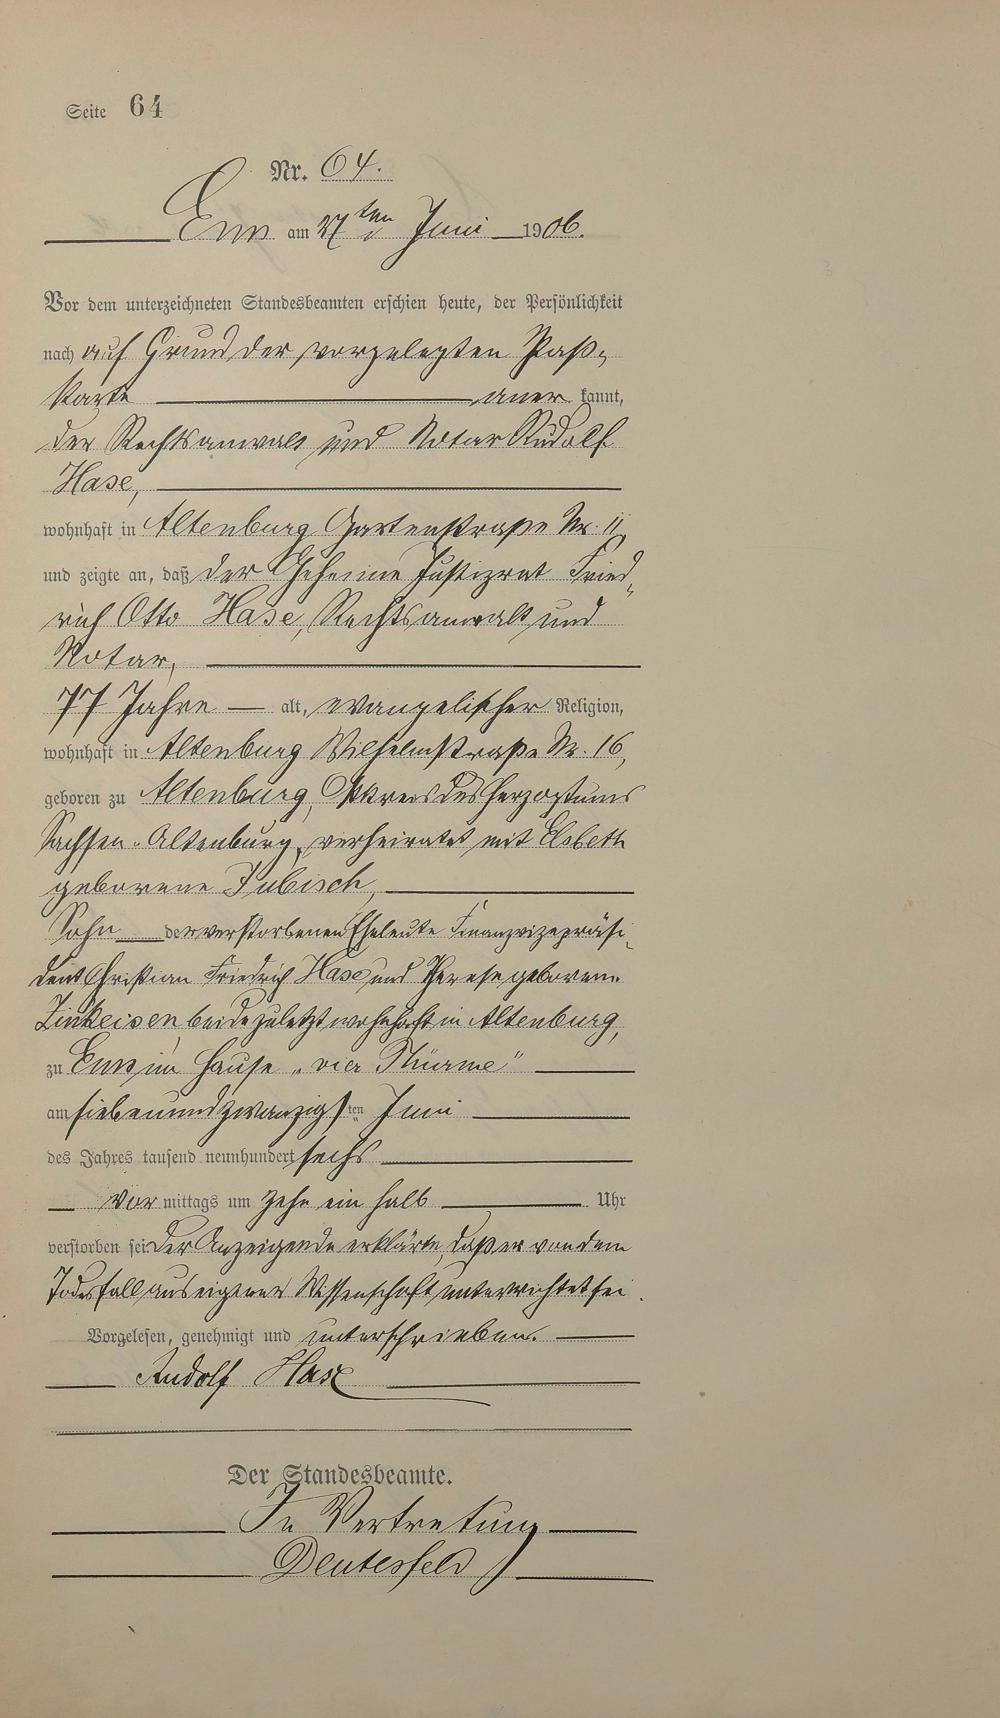 Seite 64
Nr. 64.
Ems am 27ten Juni 1906.
Vor dem unterzeichneten Standesbeamten erschien heute, der Persönlichkeit
nach auf Grund der vorgelegten Paß-
karte aner kannt,
der Rechtsanwalt und Notar Rudolf
Hase,
wohnhaft in Altenburg Gartenstraße Nr. 11
und zeigte an, daß der Geheime Justizrat Fried-
rich Otto Hase, Rechtsanwalt und
Notar,
77 Jahre alt, evangelischer Religion,
wohnhaft in Altenburg Wilhelmstraße Nr. 16,
geboren zu Altenburg, Ostkreis des Herzogtums
Sachsen-Altenburg, verheiratet mit Elsbeth
geborene Jubisch,
Sohn der verstorbenen Eheleute Finanzvizepräsi-
dent Christian Friedrich Hase und Therese geborene
Zinkeisen beide zuletzt wohnhaft in Altenburg,
zu Ems im Hause „vier Thürme"
am siebenundzwanzigsten Juni
des Jahres tausend neunhundert sechs
Vor mittags um zehn ein halb Uhr
verstorben sei. Der Anzeigende erklärte, daß er von dem
Todesfall aus eigener Wissenschaft unterrichtet sei.
Vorgelesen, genehmigt und unterschrieben.
Rudolf Hase
Der Standesbeamte.
In Vertretung
Deutesfeld